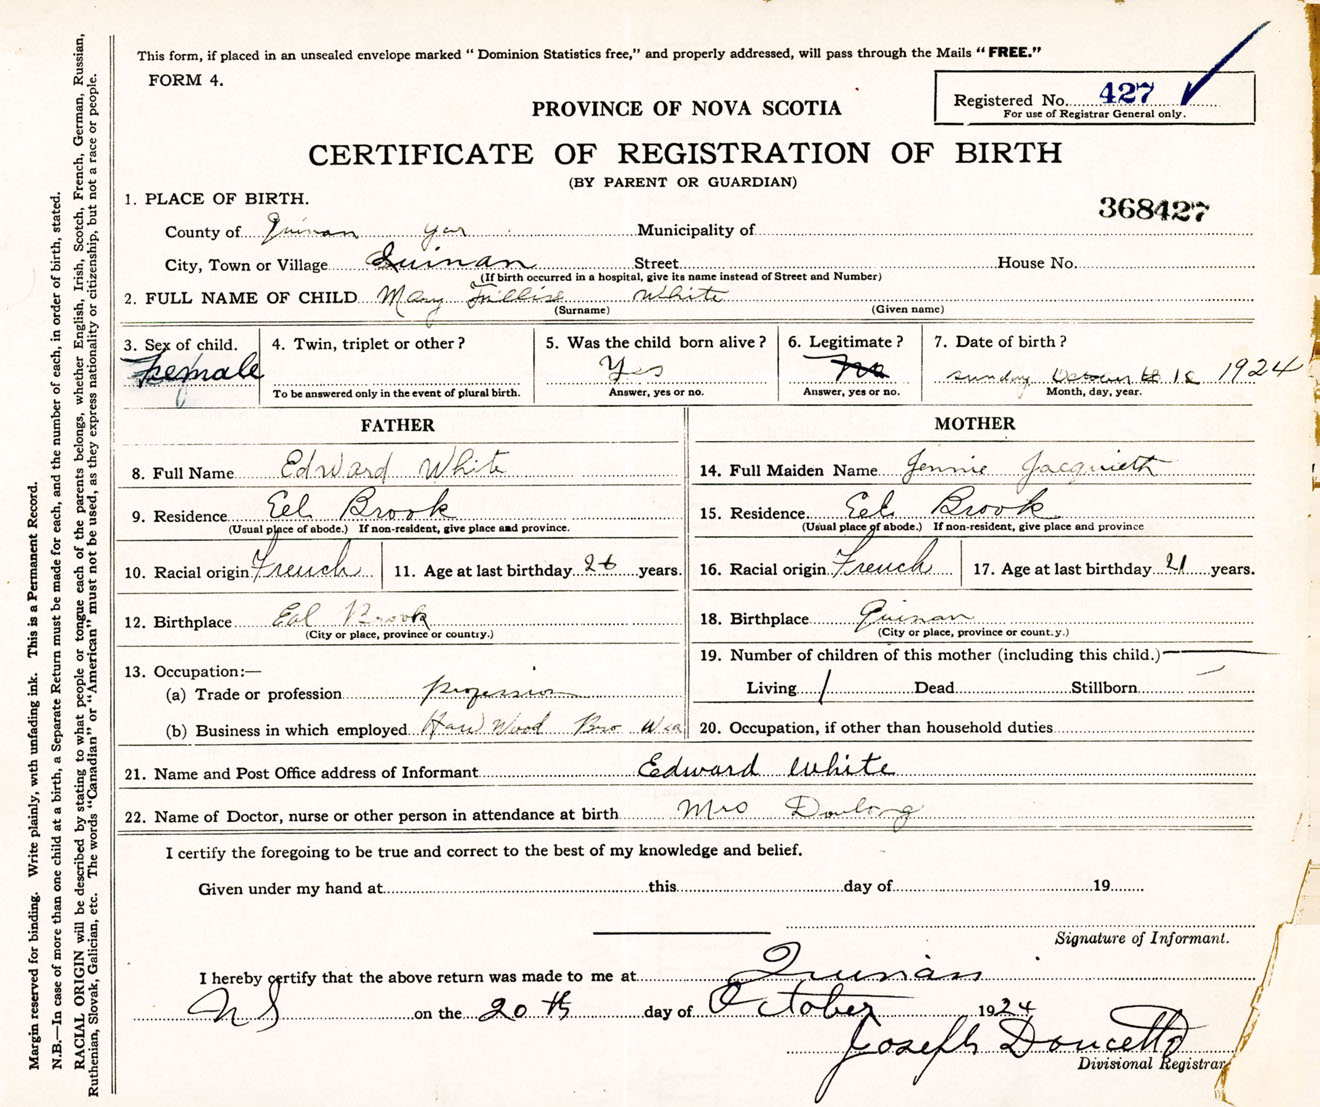 This form, if placed in an unsealed envelope marked “ Dominion Statistics free,” and properly addressed, will pass through the Mails “ FREE.”
FORM 4.
Registered No. 427
For use of Registrar General only.
PROVINCE OF NOVA SCOTIA
CERTIFICATE OF REGISTRATION OF BIRTH
(BY PARENT OR GUARDIAN)
368427
1. PLACE OF BIRTH.
County of Quinan Yar Municipality of
City, Town or Village Quinan Street House No.
(If birth occurred in a hospital, give its name instead of Street and Number)
2. FULL NAME OF CHILD Mary White
(Surname) (Given name)
3. Sex of child. 4. Twin, triplet or other ? 5. Was the child born alive ? 6. Legitimate ? 7. Date of birth ?
Female Yes No sunday 1924
To be answered only in the event of plural birth. Answer, yes or no. Answer, yes or no. Month, day, year.
FATHER MOTHER
8. Full Name Edward White 14. Full Maiden Name Jennie
9. Residence Eel Brook 15. Residence Eel Brook
(Usual place of abode.) If non-resident, give place and province. (Usual place of abode.) If non-resident, give place and province
10. Racial origin French 11. Age at last birthday years. 16. Racial origin French 17. Age at last birthday 21 years.
12. Birthplace Eal Brook 18. Birthplace Quinan
(City or place, province or country.) (City or place, province or country.)
13. Occupation:— 19. Number of children of this mother (including this child.)
(a) Trade or profession profession Living 1 Dead Stillborn
(b) Business in which employed Wood 20. Occupation, if other than household duties
21. Name and Post Office address of Informant Edward White
22. Name of Doctor, nurse or other person in attendance at birth Mrs
I certify the foregoing to be true and correct to the best of my knowledge and belief.
Given under my hand at this day of 19
Signature of Informant.
I hereby certify that the above return was made to me at Quinan
N S on the 20th day of October 1924
Joseph Doucette
Divisional Registrar
Margin reserved for binding. Write plainly, with unfading ink. This is a Permanent Record.
N.B.—In case of more than one child at a birth, a Separate Return must be made for each, and the number of each, in order of birth, stated.
RACIAL ORIGIN will be described by stating to what people or tongue each of the parents belongs, whether English, Irish, Scotch, French, German, Russian,
Ruthenian, Slovak, Galician, etc. The words “Canadian” or “American” must not be used, as they express nationality or citizenship, but not a race or people.